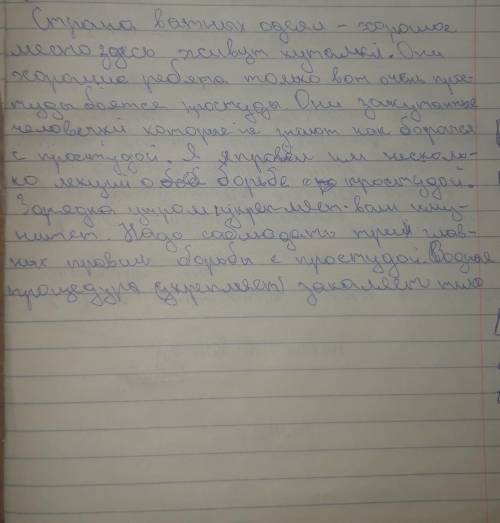 Страна ватных одеял - хорошое
место здесь живут кутамкі. Они
хорошие ребята только вот очень прос-
туды боятся простуды Они закутанные
человечки которые не знают как бороться
с простудой. Я провёл им несколь-
ко лекции о борьбе с простудой.
Зарядка утром укрепляет вам имму-
нитет. Надо соблюдать три глав-
ных правил борьбы с простудой. Водная
процедура (укрепляет) закаляет тело